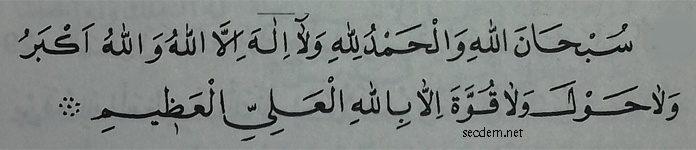 سُبْحَانَ اللهِ وَالْحَمْدُ لِلهِ وَلَٓا اِلٰهَ اِلَّا اللهُ وَاللهُ اَكْبَرُ
وَلَا حَوْلَ وَلَا قُوَّةَ اِلَّا بِاللهِ الْعَلِيِّ الْعَظِيمِ
secdem.net